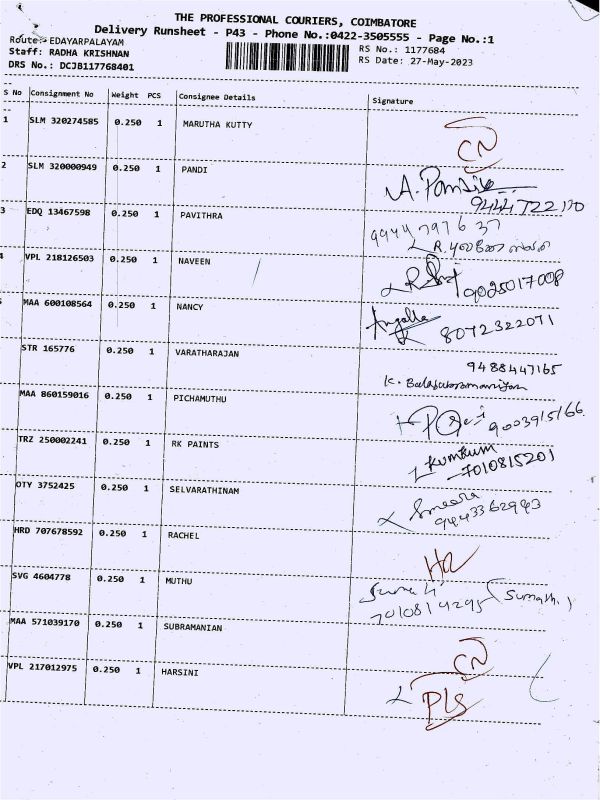 THE PROFESSIONAL COURIERS, COIMBATORE
Delivery Runsheet - P43 - Phone No.:0422-3505555 - Page No.:1
Route:- EDAYARPALAYAM
Staff: RADHA KRISHNAN
DRS No.: DCJB117768401
RS No.: 1177684
RS Date: 27-May-2023
S No Consignment No Weight PCS Consignee Details Signature
1 SLM 320274585 0.250 1 MARUTHA KUTTY CN
2 SLM 320000949 0.250 1 PANDI
3 EDQ 13467598 0.250 1 PAVITHRA 9944797637
4 VPL 218126503 0.250 1 NAVEEN 9025017008
MAA 600108564 0.250 1 NANCY 8072322071
STR 165776 0.250 1 VARATHARAJAN 9488447165
K. Balasubramaniyan
MAA 860159016 0.250 1 PICHAMUTHU 9003915166
TRZ 250002241 0.250 1 RK PAINTS Kumkum
7010815201
OTY 3752425 0.250 1 SELVARATHINAM
9443362943
HRD 707678592 0.250 1 RACHEL
SVG 4604778 0.250 1 MUTHU
7010814295 (Sumathi)
MAA 571039170 0.250 1 SUBRAMANIAN CN
VPL 217012975 0.250 1 HARSINI PLS